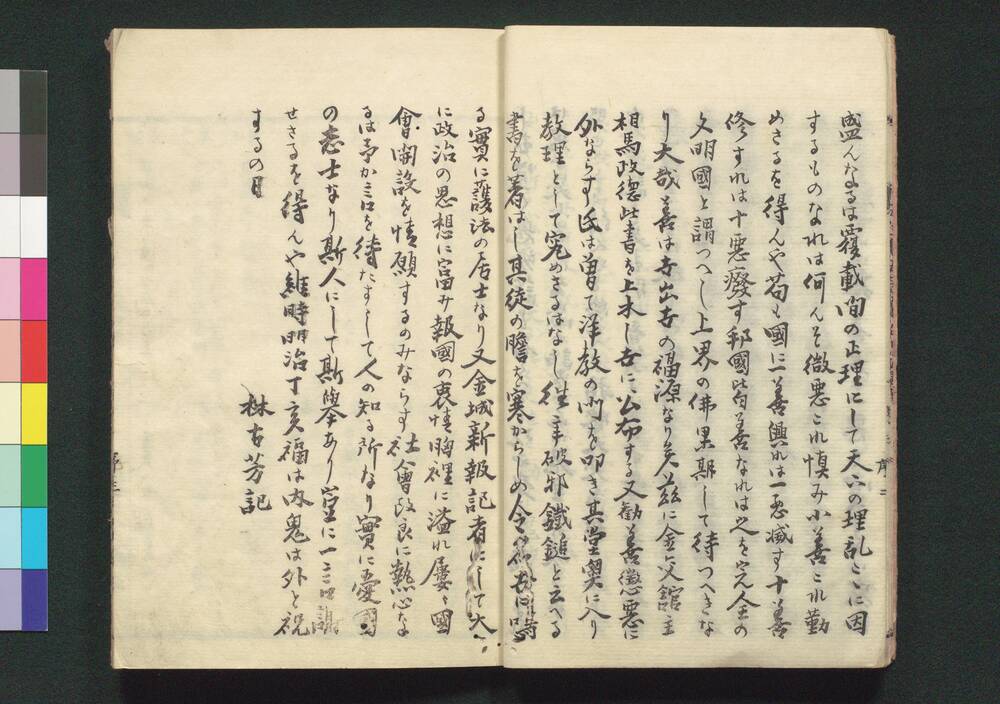 盛んなるは覆載間の正理にして天下の理乱之に因
するものなれは何んそ微悪これ慎み小善これ勤
めさるを得んや苟も國に一善興れは一悪滅す十善
修すれは十悪癈す邦國皆善なれは之を完全の
文明國と謂つへし上界の佛果期して待つへきな
り大哉善は世出世の福源なり矣茲に金交舘主
相馬政徳此書を上木し世に公布する又勧善懲悪に
外ならす氏は曽て洋教の門を叩き其堂奥に入り
教理として究めさるはなし往年破邪鐵鎚と云へる
書を著はし其徒の膽を寒からしめ令名世に
る實に護法の居士なり又金城新報記者にして大
に政治の思想に富み報國の衷情胸裡に溢れ屡々國
會開設を情願するのみならす社會改良に熱心な
るは予か言を待たすして人の知る所なり實に憂國
の志士なり斯人にして斯舉あり豈に一言謝
せさるを得んや維時明治丁亥福は内鬼は外と祝
するの日
林古芳記
序二
序三